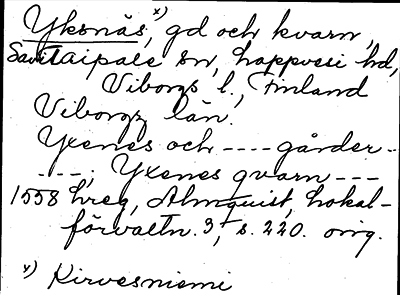 Yksnäs, x) gd och kvarn,
Savitaipale sn, Lappvesi hd,
Viborgs l., Finland
Viborgs län.
Yxenes och ---- gårder --
---; Yxenes qvarn ---
1558 hreg, Almquist, Lokal-
förvaltn. 3, s. 220. orig.
x) Kirvesniemi